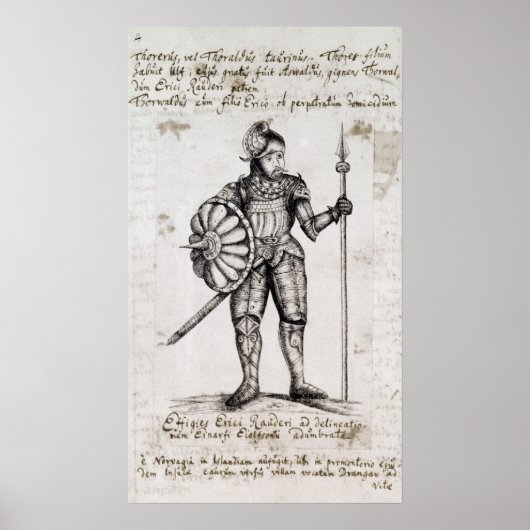 4
Thorerus, vel Thoraldus taurinus. Thorer filium
habuit Ulf, cujus gnatus fuit Aswaldus, gignens Thorwal,
dum Erici Rauderi patrem
Thorwaldus cum filio Erico ob perpetratum homicidium
Effigies Erici Rauderi ad delineatio-
nem Einarfi Eiolfsonii adumbrata
è Norvagia in Islandiam aufugit, ubi in promontorio ejus
dem Insulæ caurum versus villam vocatam Drangar ad
Vitæ